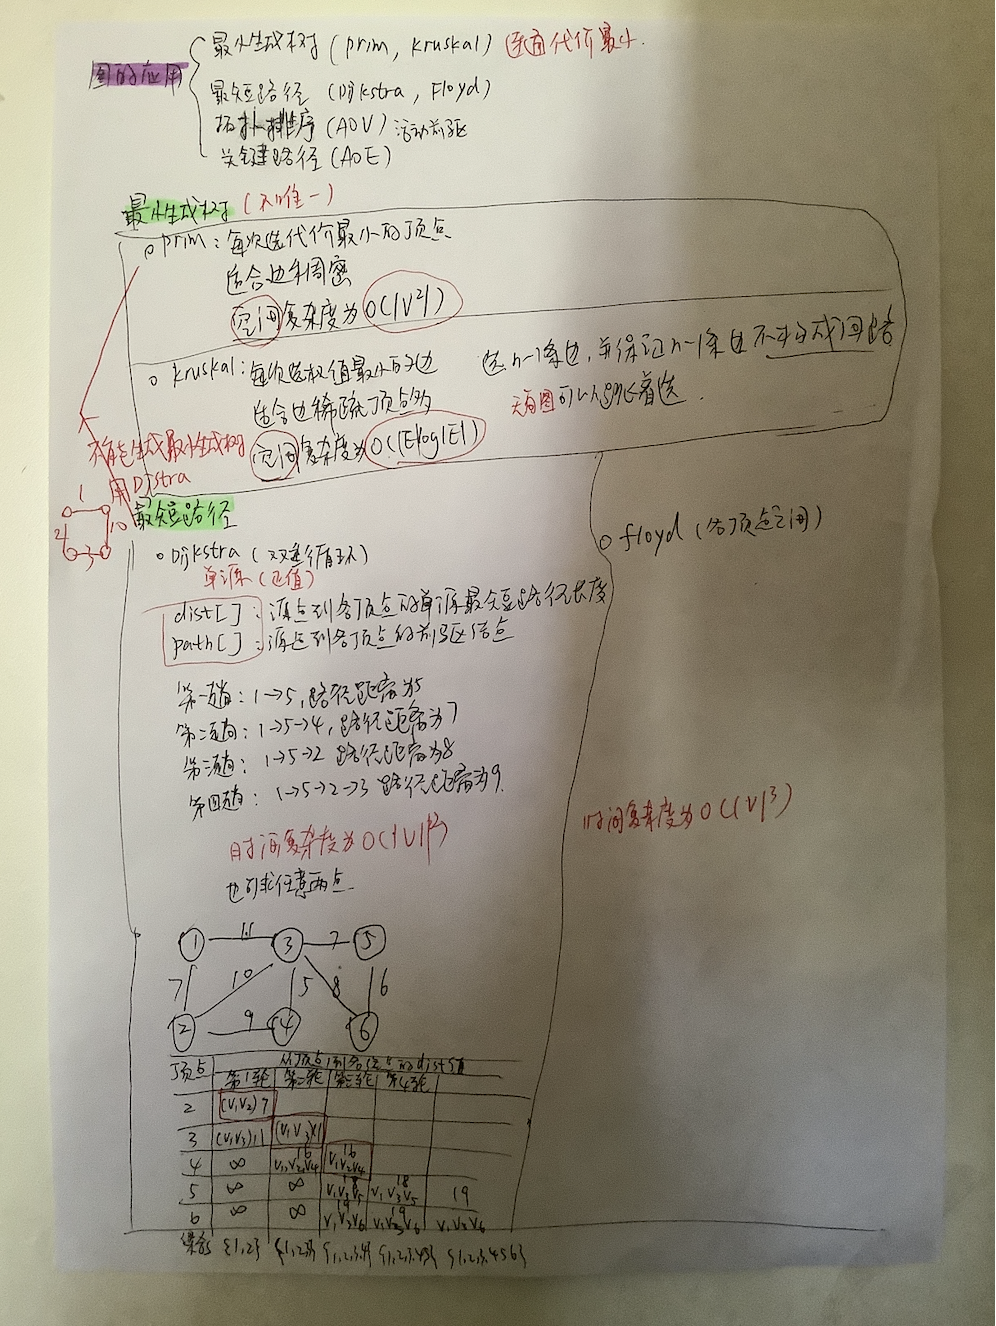 图的应用
最小生成树 (prim, kruskal) 连通代价最小.
最短路径 (Dijkstra, Floyd)
拓扑排序 (AOV) 活动前驱
关键路径 (AOE)
最小生成树 (不唯一)
prim: 每次选代价最小的顶点
适合边稠密
空间复杂度为O(|V²|)
kruskal: 每次选权值最小的边
适合边稀疏顶点多
空间复杂度为O(|E|log|E|)
选n-1条边,并保证n-1条边不构成回路
无向图可以跳着选.
不能生成最小生成树
用Dijstra
1
2
10
3
最短路径
Dijkstra (双重循环)
单源 (正值)
dist[]: 源点到各顶点的单源最短路径长度
path[]: 源点到各顶点的前驱结点
第一趟: 1→5, 路径距离为5
第二趟: 1→5→4, 路径距离为7
第三趟: 1→5→2 路径距离为8
第四趟: 1→5→2→3 路径距离为9.
时间复杂度为O(|V|²)
也可求任意两点.
floyd (各顶点之间)
时间复杂度为O(|V|³)
1 11 3 7 5
7 10 5 8 6
2 9 4 6
顶点 从顶点1到各终点的dist值
第1轮 第二轮 第三轮 第4轮
2 (V₁V₂) 7
3 (V₁V₃) 11 (V₁V₃) 11
4 ∞ 16 V₁,V₂,V₄ 16 V₁V₂V₄
5 ∞ ∞ 18 V₁V₃V₅ 18 V₁V₃V₅ 19
6 ∞ ∞ 19 V₁V₃V₆ 19 V₁V₃V₆ V₁V₃V₆
集合S {1,2} {1,2,3} {1,2,3,4} {1,2,3,4,5} {1,2,3,4,5,6}